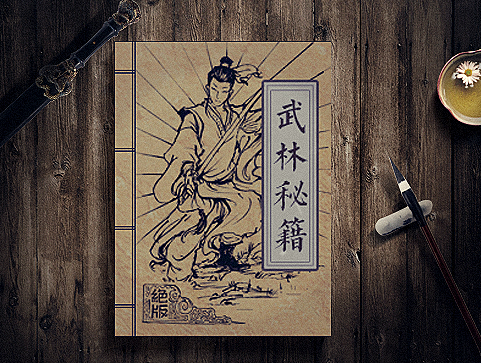 武林秘籍
絕版